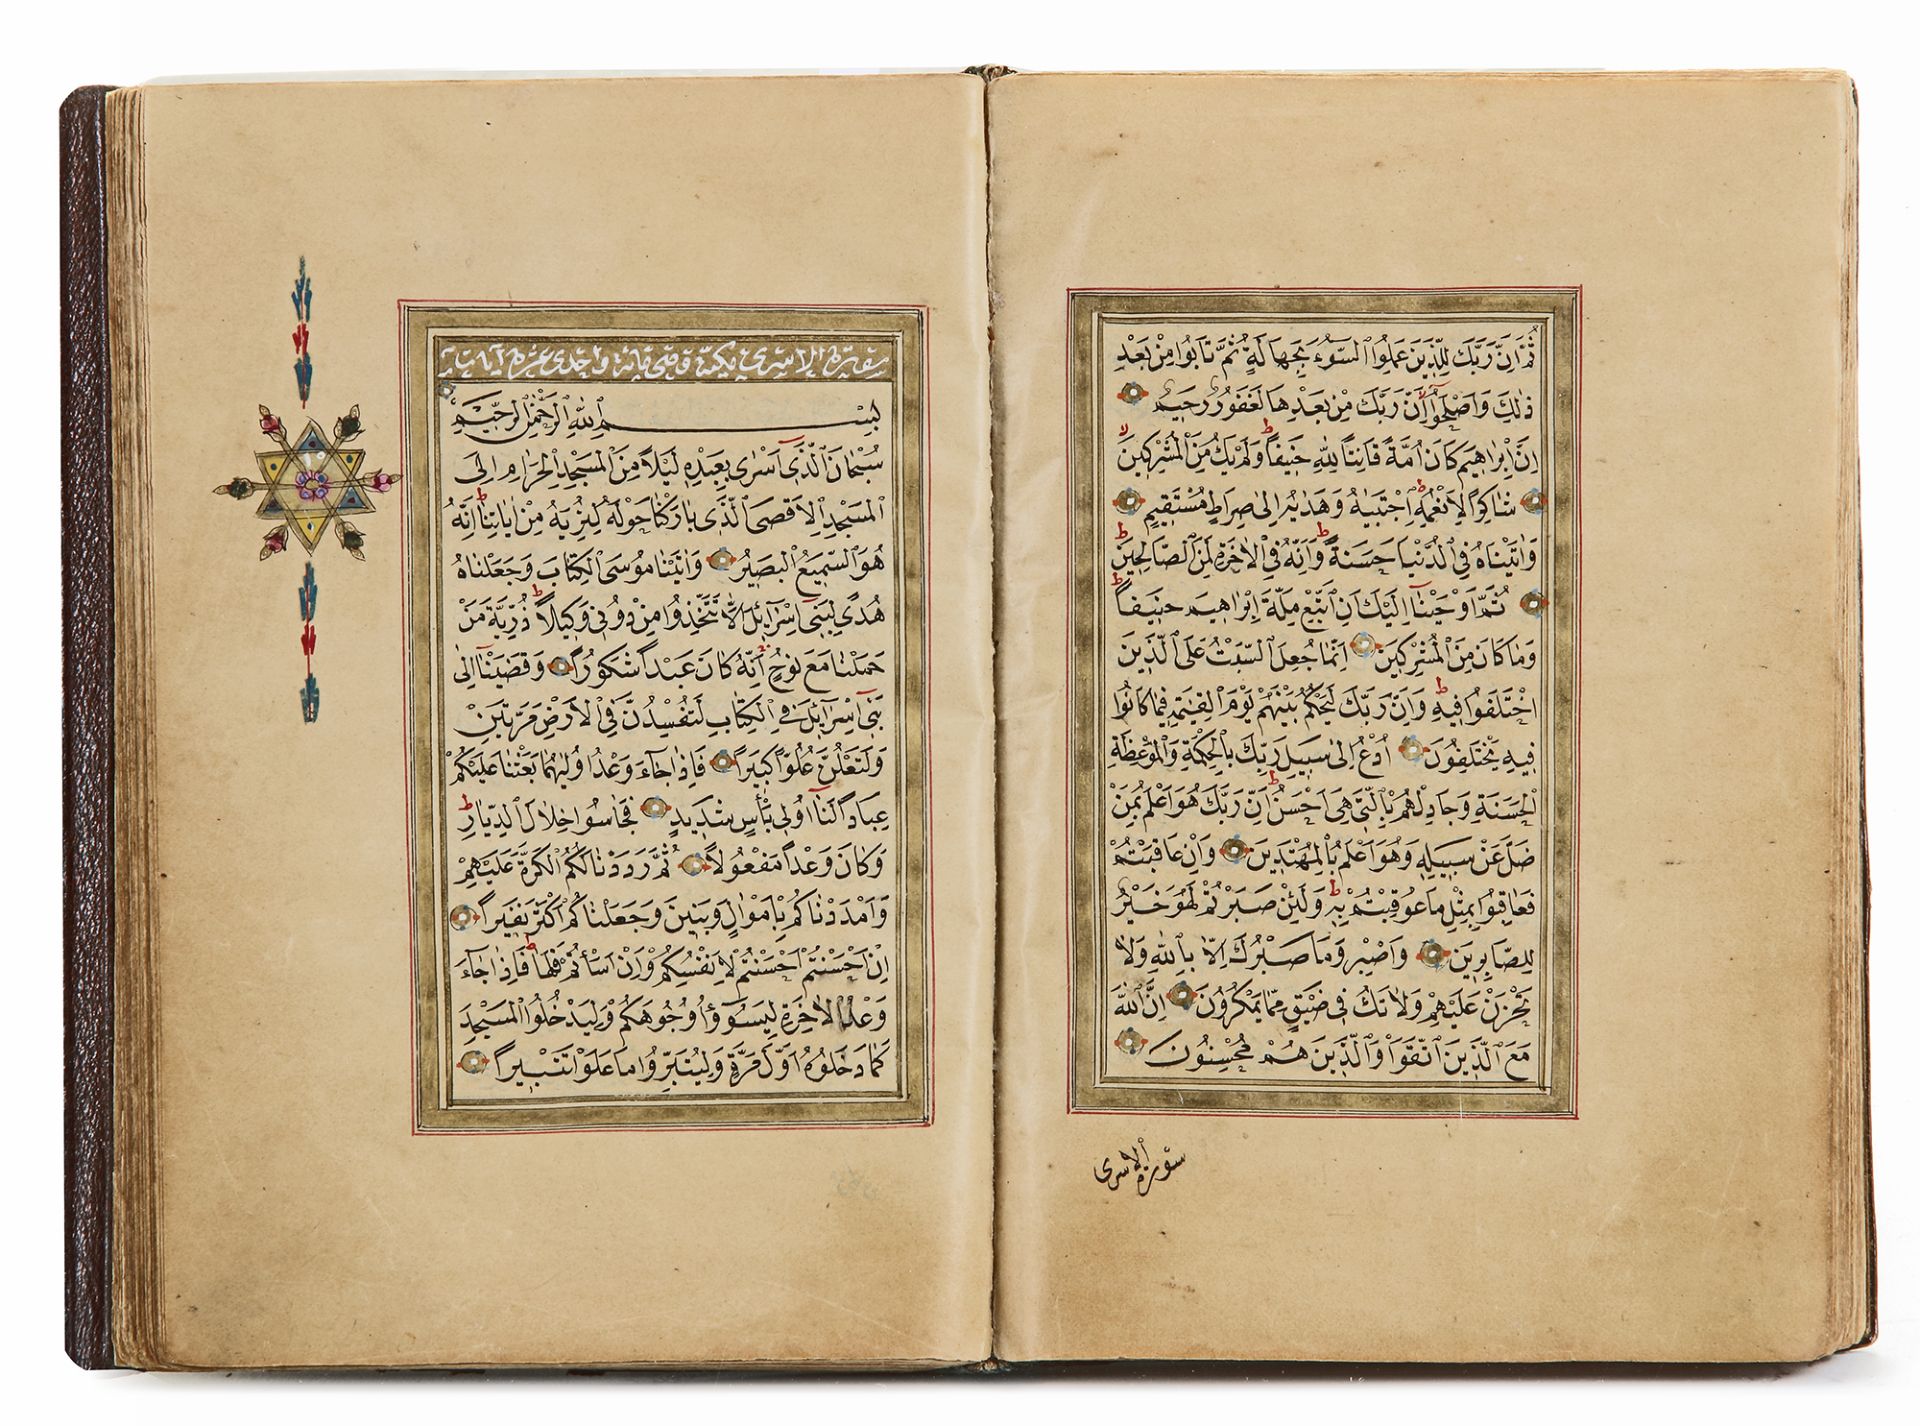 ثُمَّ اِنَّ رَبَّكَ لِلَّذِينَ عَمِلُوا السُّوءَ بِجَهَالَةٍ ثُمَّ تَابُوا مِنْ بَعْدِ
ذٰلِكَ وَاَصْلَحُوا اِنَّ رَبَّكَ مِنْ بَعْدِهَا لَغَفُورٌ رَحِيمٌ
اِنَّ اِبْرٰهِيمَ كَانَ اُمَّةً قَانِتًا لِلّٰهِ حَنِيفًا ط وَلَمْ يَكُ مِنَ الْمُشْرِكِينَ لا
شَاكِرًا لِاَنْعُمِهِ ط اِجْتَبٰيهُ وَهَدٰيهُ اِلٰى صِرَاطٍ مُسْتَقِيمٍ
وَاٰتَيْنَاهُ فِي الدُّنْيَا حَسَنَةً ط وَاِنَّهُ فِي الْاٰخِرَةِ لَمِنَ الصَّالِحِينَ ط
ثُمَّ اَوْحَيْنَا اِلَيْكَ اَنِ اتَّبِعْ مِلَّةَ اِبْرٰاهِيمَ حَنِيفًا ط
وَمَا كَانَ مِنَ الْمُشْرِكِينَ اِنَّمَا جُعِلَ السَّبْتُ عَلَى الَّذِينَ
اخْتَلَفُوا فِيهِ ط وَاِنَّ رَبَّكَ لَيَحْكُمُ بَيْنَهُمْ يَوْمَ الْقِيٰمَةِ فِيمَا كَانُوا
فِيهِ يَخْتَلِفُونَ اُدْعُ اِلٰى سَبِيلِ رَبِّكَ بِالْحِكْمَةِ وَالْمَوْعِظَةِ
الْحَسَنَةِ وَجَادِلْهُمْ بِالَّتِي هِيَ اَحْسَنُ ط اِنَّ رَبَّكَ هُوَ اَعْلَمُ بِمَنْ
ضَلَّ عَنْ سَبِيلِهِ وَهُوَ اَعْلَمُ بِالْمُهْتَدِينَ وَاِنْ عَاقَبْتُمْ
فَعَاقِبُوا بِمِثْلِ مَا عُوقِبْتُمْ بِهِ ط وَلَئِنْ صَبَرْتُمْ لَهُوَ خَيْرٌ
لِلصَّابِرِينَ وَاصْبِرْ وَمَا صَبْرُكَ اِلَّا بِاللّٰهِ وَلَا
تَحْزَنْ عَلَيْهِمْ وَلَا تَكُ فِي ضَيْقٍ مِمَّا يَمْكُرُونَ اِنَّ اللّٰهَ
مَعَ الَّذِينَ اتَّقَوْا وَالَّذِينَ هُمْ مُحْسِنُونَ
سورة الاسرى
سورة الاسرى مكية وهى مائة واحدى عشرة آيات
بِسْمِ اللّٰهِ الرَّحْمٰنِ الرَّحِيمِ
سُبْحَانَ الَّذِي اَسْرٰى بِعَبْدِهِ لَيْلًا مِنَ الْمَسْجِدِ الْحَرَامِ اِلَى
الْمَسْجِدِ الْاَقْصَى الَّذِي بَارَكْنَا حَوْلَهُ لِنُرِيَهُ مِنْ اٰيَاتِنَا ط اِنَّهُ
هُوَ السَّمِيعُ الْبَصِيرُ وَاٰتَيْنَا مُوسَى الْكِتَابَ وَجَعَلْنَاهُ
هُدًى لِبَنِي اِسْرَائِلَ اَلَّا تَتَّخِذُوا مِنْ دُونِي وَكِيلًا ط ذُرِّيَّةَ مَنْ
حَمَلْنَا مَعَ نُوحٍ اِنَّهُ كَانَ عَبْدًا شَكُورًا وَقَضَيْنَا اِلٰى
بَنِي اِسْرَائِلَ فِي الْكِتَابِ لَتُفْسِدُنَّ فِي الْاَرْضِ مَرَّتَيْنِ
وَلَتَعْلُنَّ عُلُوًّا كَبِيرًا فَاِذَا جَاءَ وَعْدُ اُولٰيهُمَا بَعَثْنَا عَلَيْكُمْ
عِبَادًا لَنَا اُولِي بَأْسٍ شَدِيدٍ فَجَاسُوا خِلَالَ الدِّيَارِ ط
وَكَانَ وَعْدًا مَفْعُولًا ثُمَّ رَدَدْنَا لَكُمُ الْكَرَّةَ عَلَيْهِمْ
وَاَمْدَدْنَاكُمْ بِاَمْوَالٍ وَبَنِينَ وَجَعَلْنَاكُمْ اَكْثَرَ نَفِيرًا
اِنْ اَحْسَنْتُمْ اَحْسَنْتُمْ لِاَنْفُسِكُمْ وَاِنْ اَسَأْتُمْ فَلَهَا ط فَاِذَا جَاءَ
وَعْدُ الْاٰخِرَةِ لِيَسُوؤُا وُجُوهَكُمْ وَلِيَدْخُلُوا الْمَسْجِدَ
كَمَا دَخَلُوهُ اَوَّلَ مَرَّةٍ وَلِيُتَبِّرُوا مَا عَلَوْا تَتْبِيرًا